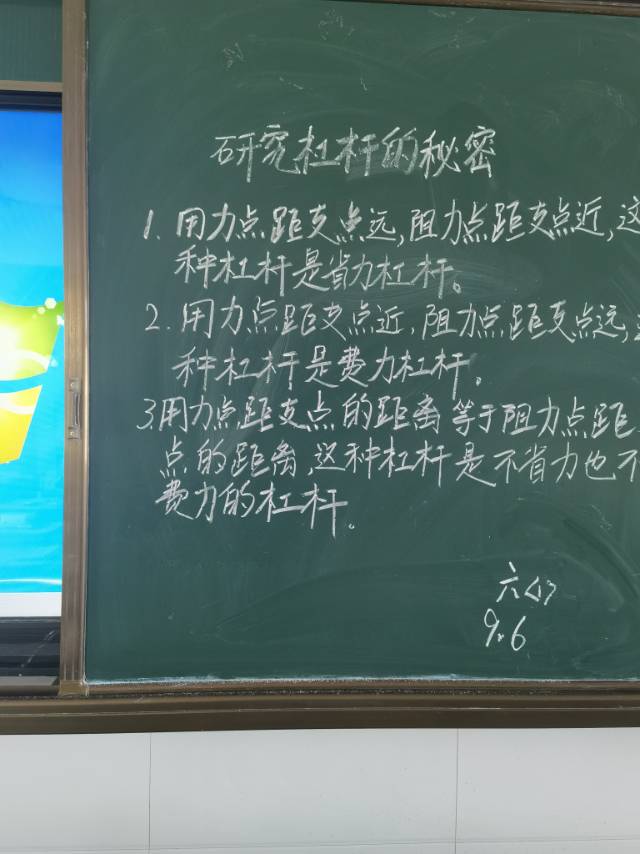 研究杠杆的秘密
1. 用力点距支点远,阻力点距支点近,这
种杠杆是省力杠杆。
2. 用力点距支点近,阻力点距支点远,
种杠杆是费力杠杆。
3.用力点距支点的距离等于阻力点距
点的距离,这种杠杆是不省力也不
费力的杠杆。
六<1>
9.6